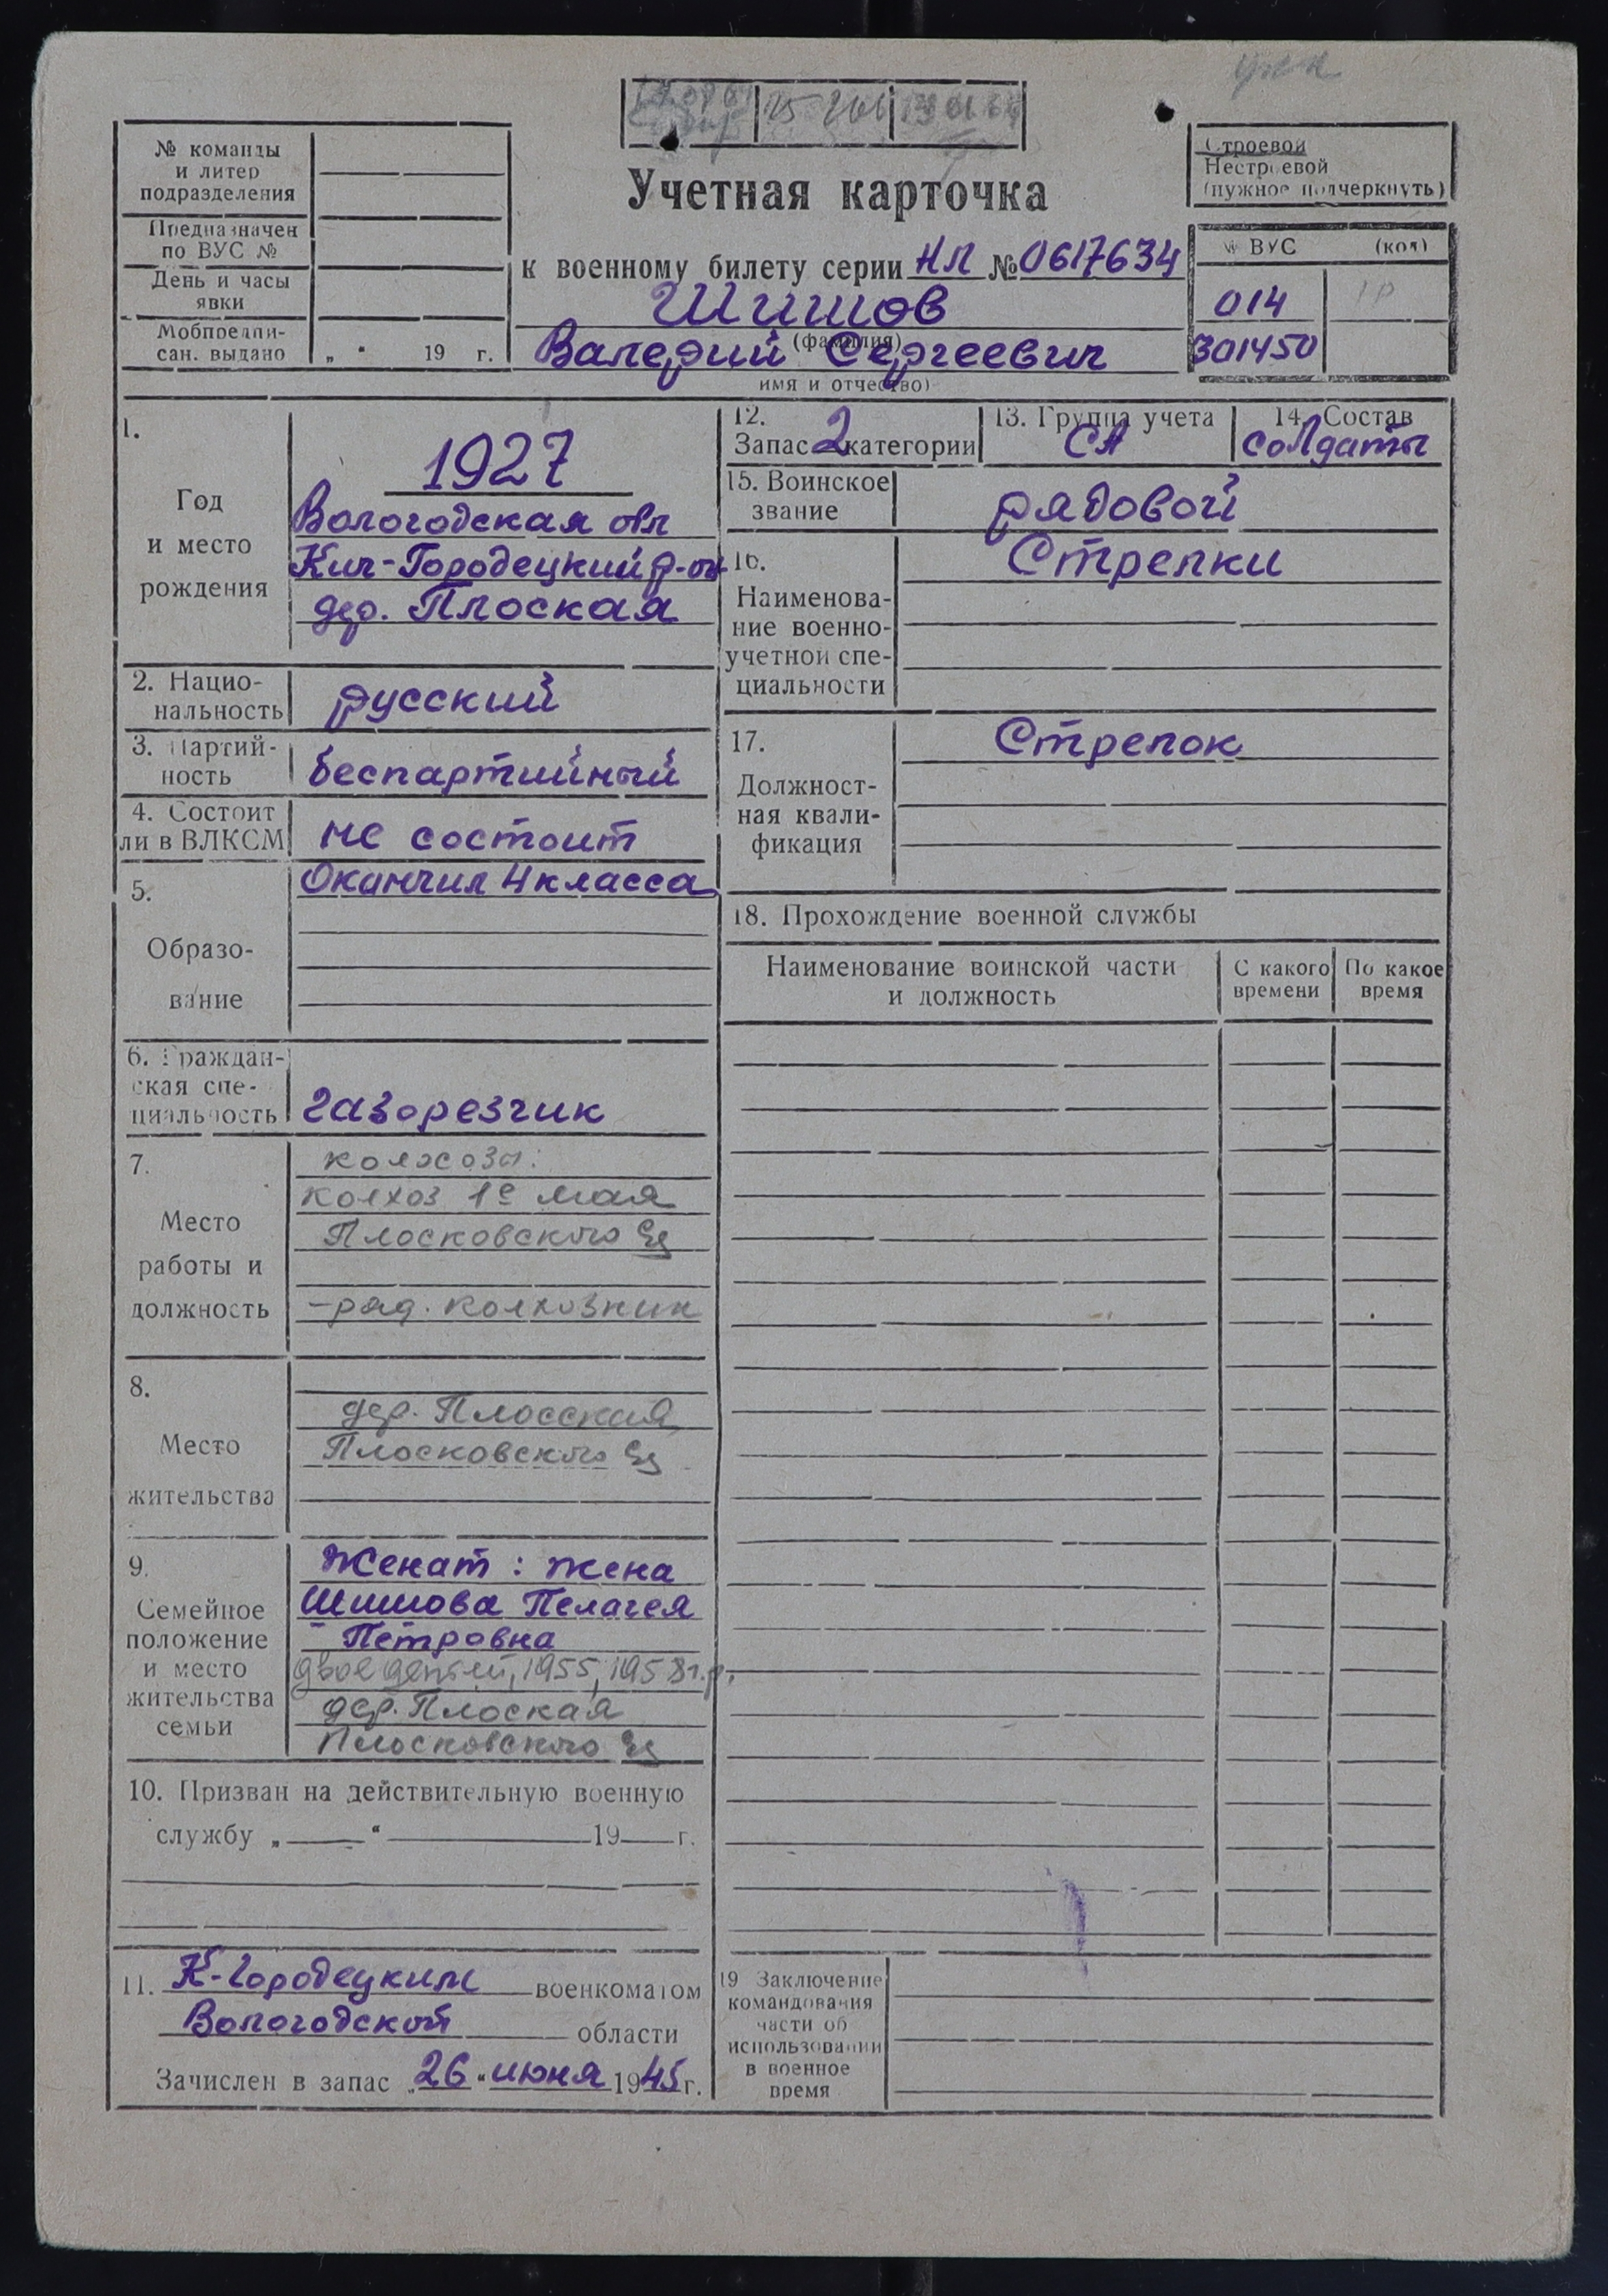 № команды
и литер
подразделения
Предназначен
по ВУС №
День и часы
явки
Мобпредпи-
сан. выдано „ “ 19 г.
Учетная карточка
к военному билету серии НЛ № 0617634
Шишов
(фамилия)
Валерий Сергеевич
имя и отчество)
Строевой
Нестроевой
(нужное подчеркнуть)
№ ВУС (код)
014
301450
1.
Год
и место
рождения
1927
Вологодская обл
Кич-Городецкий р-он
дер. Плоская
2. Нацио-
нальность
русский
3. Партий-
ность
беспартийный
4. Состоит
ли в ВЛКСМ
не состоит
5.
Образо-
вание
Окончил 4 класса
6. Граждан-
ская спе-
циальность
газорезчик
7.
Место
работы и
должность
колхоз 1е мая
Плосковского
-ряд. колхозник
8.
Место
жительства
дер. Плосская
Плосковского
9.
Семейное
положение
и место
жительства
семьи
Женат: жена
Шишова Пелагея
Петровна
двое детей, 1955, 1958 г.р.
дер. Плоская
Плосковского
10. Призван на действительную военную
службу „ “ 19 г.
11. К-Городецким военкоматом
Вологодской области
Зачислен в запас „26“ июня 1945 г.
12.
Запас 2 категории
13. Группа учета
СА
14. Состав
солдаты
15. Воинское
звание
рядовой
16.
Наименова-
ние военно-
учетной спе-
циальности
Стрелки
17.
Должност-
ная квали-
фикация
Стрелок
18. Прохождение военной службы
Наименование воинской части
и должность
С какого
времени
По какое
время
19 Заключение
командования
части об
использовании
в военное
время